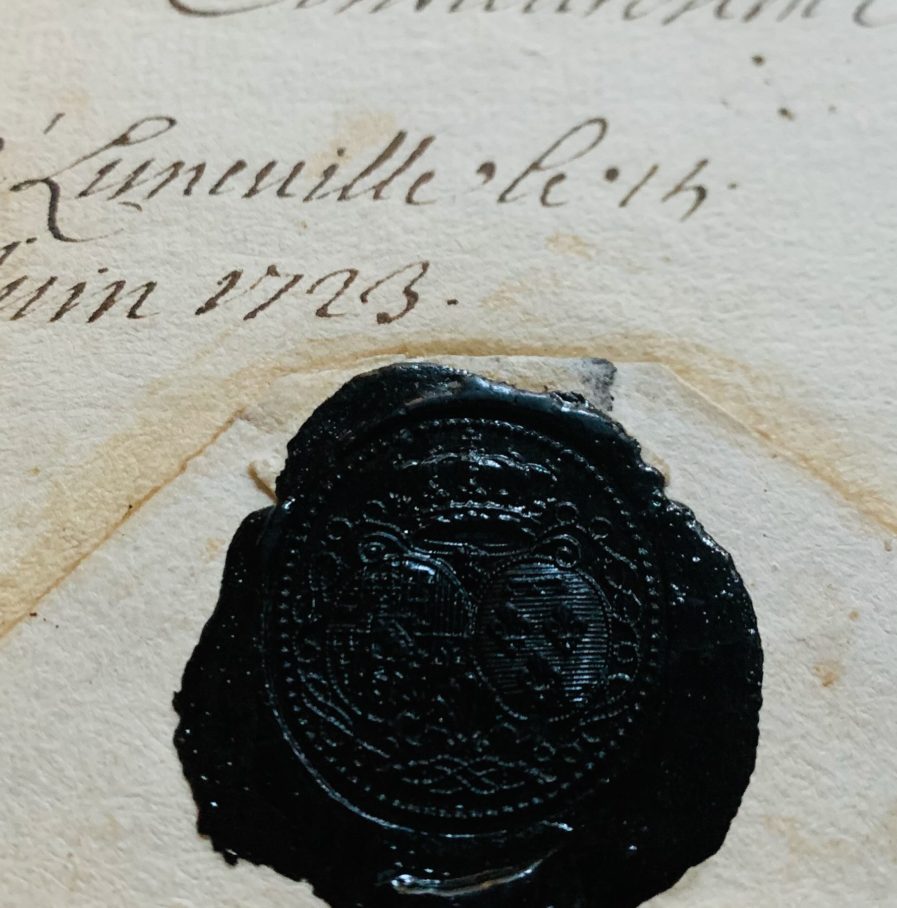 Luneuille • le • 14.
Juin 1723.